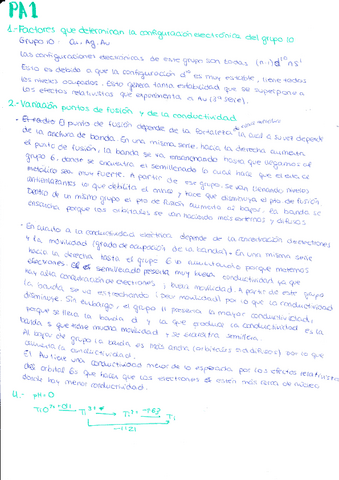 PA1
1.- Factores que determinan la configuración electrónica del grupo 10
Grupo 10: Cu, Ag, Au
Las configuraciones electrónicas de este grupo son todas (n-1)d¹⁰ns¹
Esto es debido a que la configuración d¹⁰ es muy estable, tiene todos
los niveles ocupados. Esto genera tanta estabilidad que se superpone a
los efectos relativistas que experimenta el Au (3ª serie).
2.- Variación puntos de fusión y de la conductividad
El punto de fusión depende de la fortaleza del enlace metálico la cual a su vez depende
de la anchura de banda. En una misma serie, hacia la derecha aumenta
el punto de fusión, la banda se va ensanchando hasta que llegamos al
grupo 6, donde se encuentra el semillenado lo cual hace que el enlace
metálico sea muy fuerte. A partir de ese grupo, se van llenando niveles
antienlazantes lo que debilita el enlace y hace que disminuya el pto de fusión
Dentro de un mismo grupo el pto de fusión aumenta al bajar. La banda se
ensancha porque los orbitales se van haciendo más externos y difusos
- En cuanto a la conductividad eléctrica, depende de la concentración de electrones
y la movilidad (grado de ocupación de la banda). En una misma serie
hacia la derecha hasta el grupo 6 va aumentando porque metemos
electrones. El semillenado presenta muy buena conductividad ya que
hay alta concentración de electrones y buena movilidad. A partir de este grupo
la banda se va estrechando (peor movilidad) por lo que la conductividad
disminuye. Sin embargo, el grupo 11 presenta la mayor conductividad,
porque se llena la banda d y la que produce la conductividad es la
banda s que tiene mucha movilidad y se encuentra semillena.
Al bajar de grupo la banda es más ancha (orbitales + difusos) por lo que
aumenta la conductividad.
El Au tiene una conductividad menor de lo esperado por los efectos relativistas
del orbital 6s que hacen que los electrones estén más cerca del núcleo
dando hay menor conductividad.
4.- pH=0